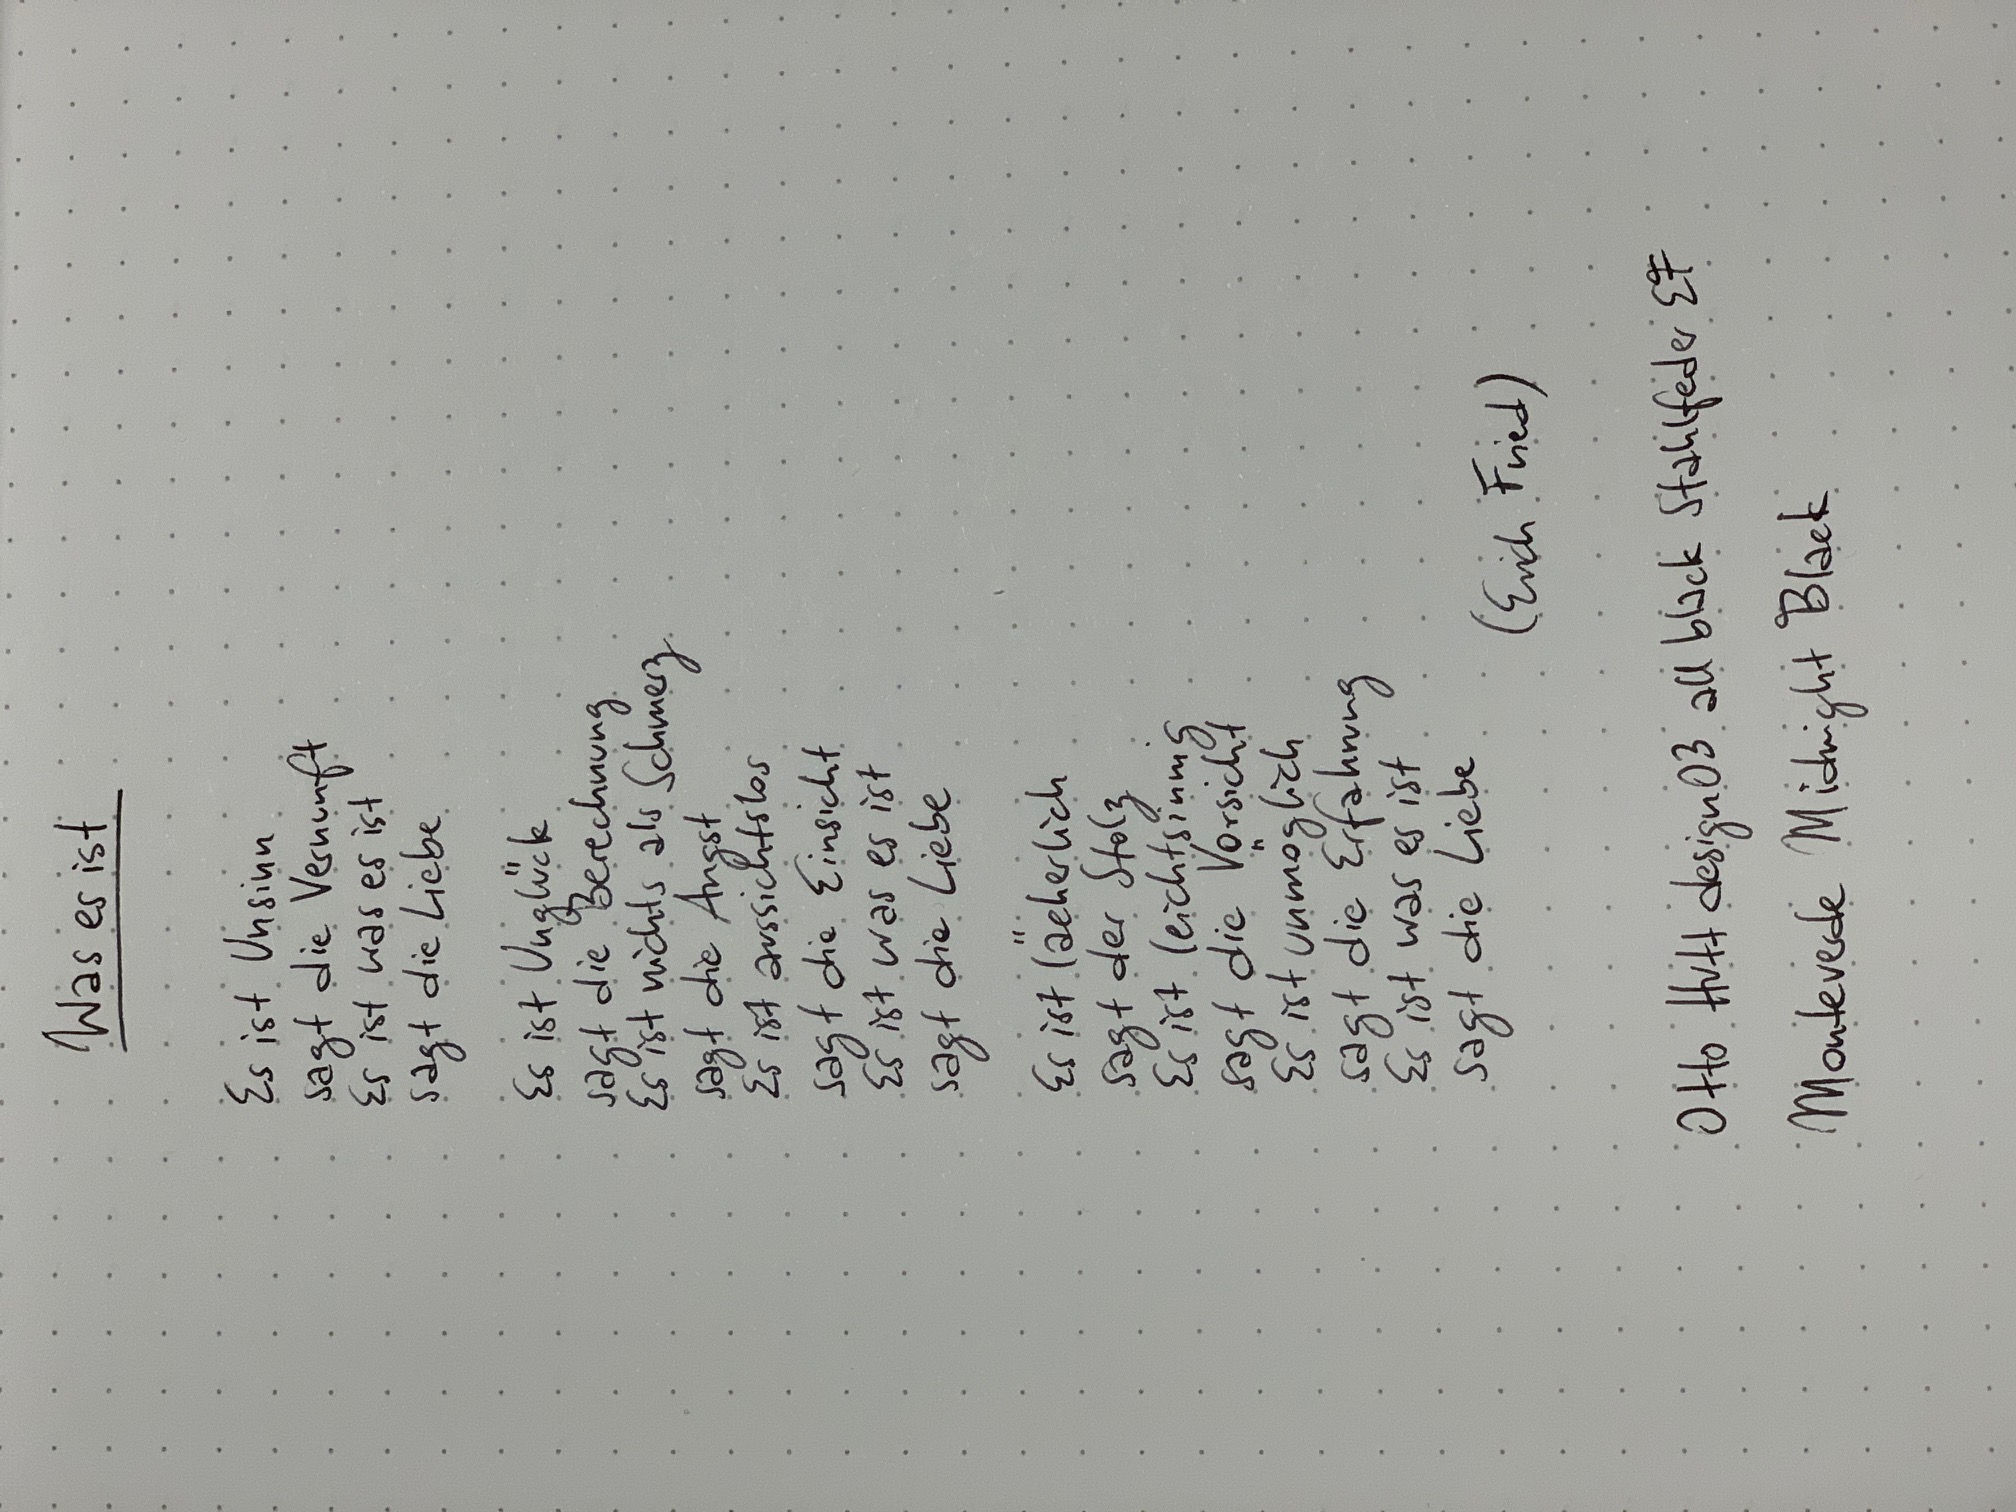 Was es ist
Es ist Unsinn
sagt die Vernunft
Es ist was es ist
sagt die Liebe
Es ist Unglück
sagt die Berechnung
Es ist nichts als Schmerz
sagt die Angst
Es ist aussichtslos
sagt die Einsicht
Es ist was es ist
sagt die Liebe
Es ist lächerlich
sagt der Stolz
Es ist leichtsinnig
sagt die Vorsicht
Es ist unmöglich
sagt die Erfahrung
Es ist was es ist
sagt die Liebe
(Erich Fried)
Otto Hutt design03 all black Stahlfeder EF
Monteverde Midnight Black